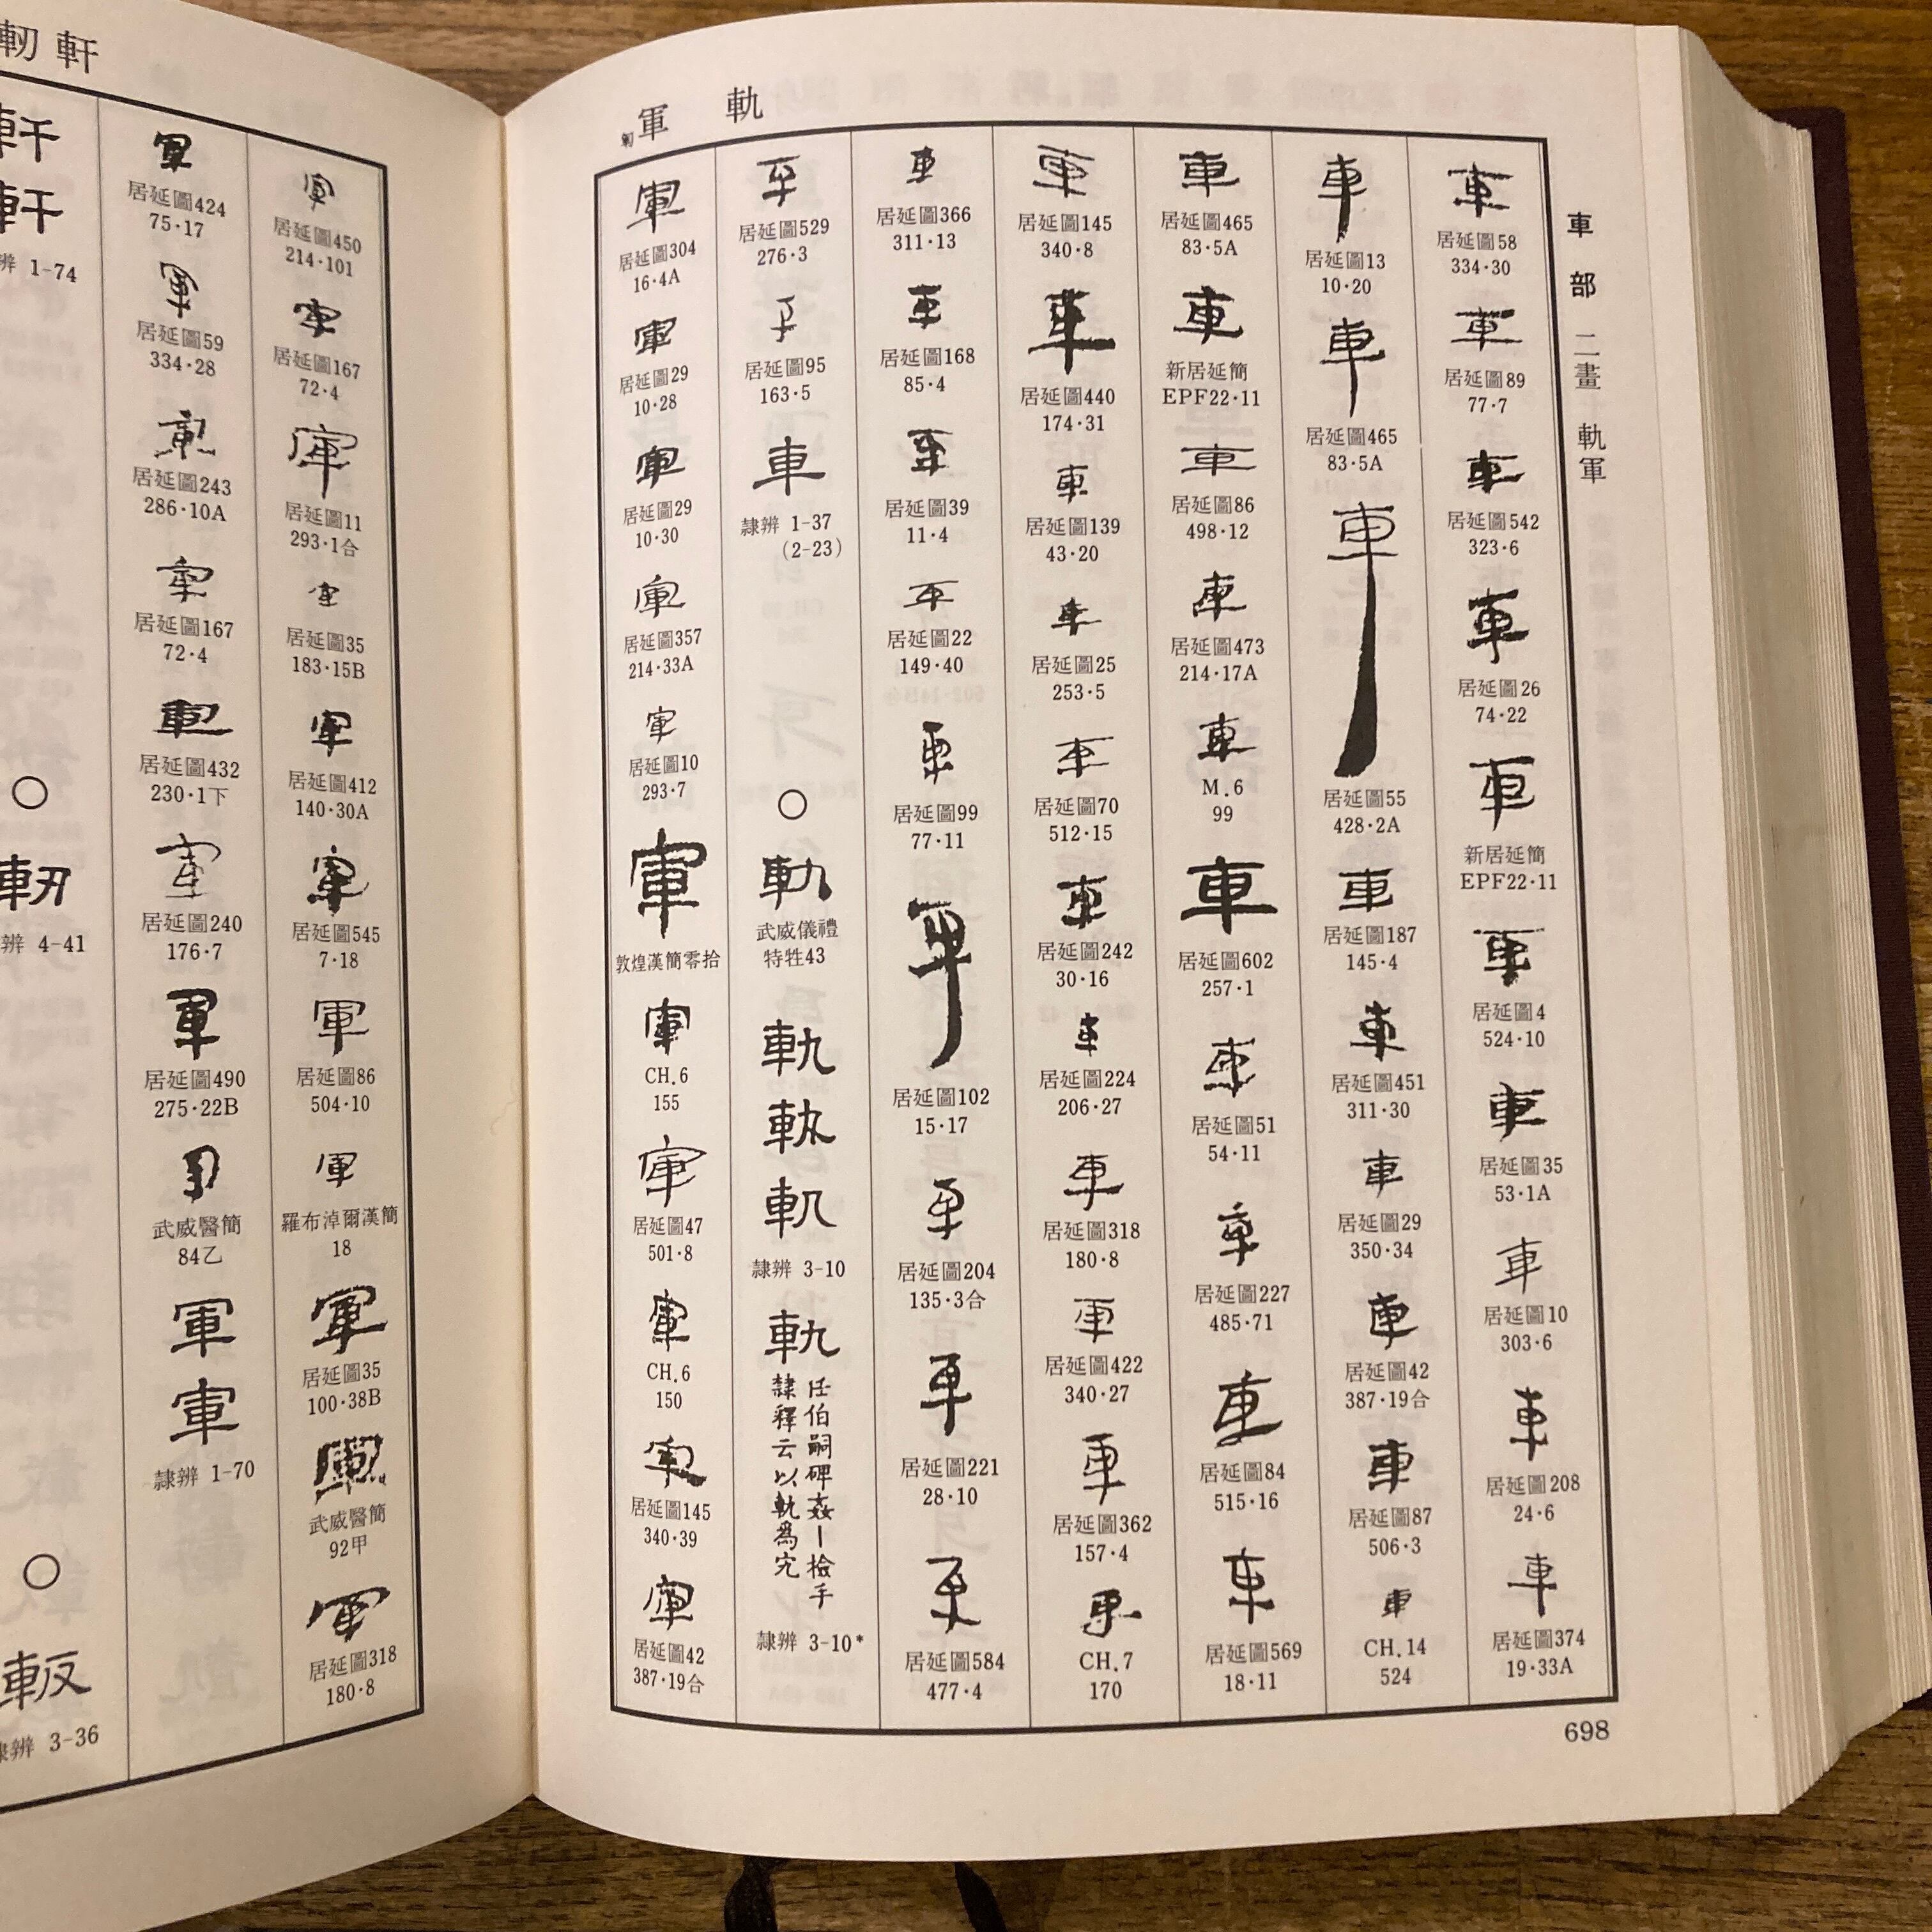 軌
軍
車部 二畫 軌軍
車
居延圖58
334·30
車
居延圖89
77·7
車
居延圖542
323·6
車
居延圖26
74·22
車
新居延簡
EPF22·11
車
居延圖4
524·10
車
居延圖35
53·1A
車
居延圖10
303·6
車
居延圖208
24·6
車
居延圖374
19·33A
車
居延圖13
10·20
車
居延圖465
83·5A
車
居延圖55
428·2A
車
居延圖187
145·4
車
居延圖451
311·30
車
居延圖29
350·34
車
居延圖42
387·19合
車
居延圖87
506·3
車
CH.14
524
車
居延圖465
83·5A
車
新居延簡
EPF22·11
車
居延圖86
498·12
車
居延圖473
214·17A
車
M.6
99
車
居延圖602
257·1
車
居延圖51
54·11
車
居延圖227
485·71
車
居延圖84
515·16
車
居延圖569
18·11
車
居延圖145
340·8
車
居延圖440
174·31
車
居延圖139
43·20
車
居延圖25
253·5
車
居延圖70
512·15
車
居延圖242
30·16
車
居延圖224
206·27
車
居延圖318
180·8
車
居延圖422
340·27
車
居延圖362
157·4
車
CH.7
170
車
居延圖366
311·13
車
居延圖168
85·4
車
居延圖39
11·4
車
居延圖22
149·40
車
居延圖99
77·11
車
居延圖102
15·17
車
居延圖204
135·3合
車
居延圖221
28·10
車
居延圖584
477·4
車
居延圖529
276·3
車
居延圖95
163·5
車
隸辨 1-37
(2-23)
○
軌
武威儀禮
特牲43
軌
軌
軌
隸辨 3-10
軌
任伯嗣碑姦｜捡手
隸釋云以軌爲宄
隸辨 3-10*
軍
居延圖304
16·4A
軍
居延圖29
10·28
軍
居延圖29
10·30
軍
居延圖357
214·33A
軍
居延圖10
293·7
軍
敦煌漢簡零拾
軍
CH.6
155
軍
居延圖47
501·8
軍
CH.6
150
軍
居延圖145
340·39
軍
居延圖42
387·19合
698
軒
軔
軍
居延圖450
214·101
軍
居延圖167
72·4
軍
居延圖11
293·1合
軍
居延圖35
183·15B
軍
居延圖412
140·30A
軍
居延圖545
7·18
軍
居延圖86
504·10
軍
羅布淖爾漢簡
18
軍
居延圖35
100·38B
軍
武威醫簡
92甲
軍
居延圖318
180·8
軍
居延圖424
75·17
軍
居延圖59
334·28
軍
居延圖243
286·10A
軍
居延圖167
72·4
軍
居延圖432
230·1下
軍
居延圖240
176·7
軍
居延圖490
275·22B
軍
武威醫簡
84乙
軍
軍
隸辨 1-70
軒
軒
辨 1-74
○
軔
辨 4-41
○
軛
隸辨 3-36